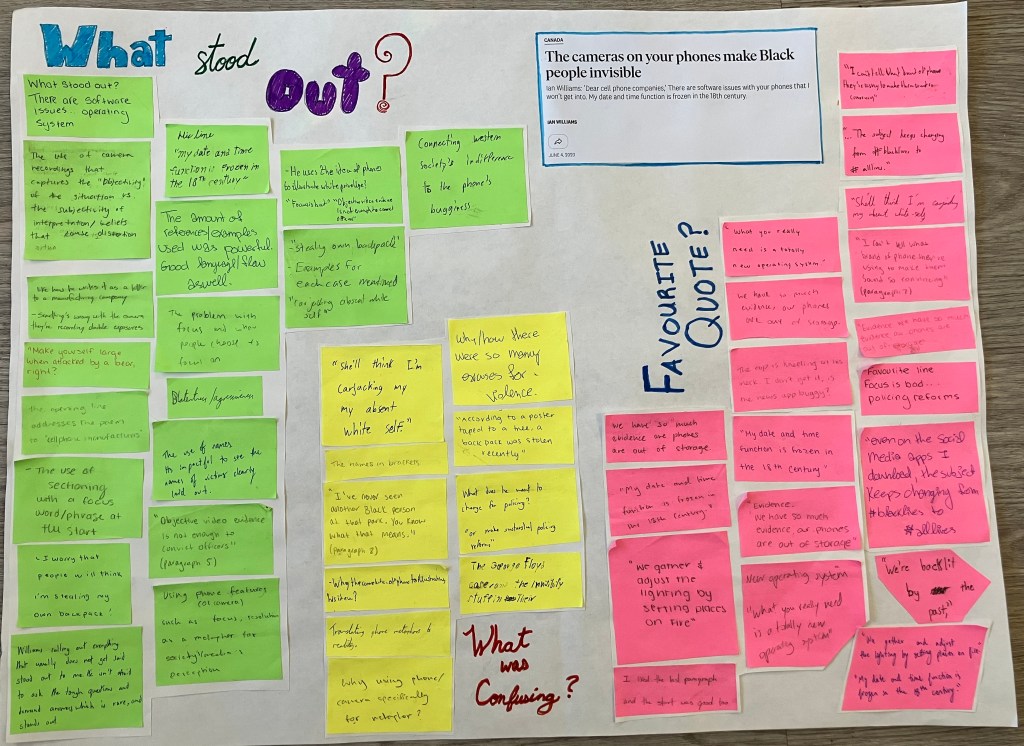 What stood
Out?
CANADA
The cameras on your phones make Black
people invisible
Ian Williams: 'Dear cell phone companies,' There are software issues with your phones that I
won't get into. My date and time function is frozen in the 18th century.
IAN WILLIAMS
JUNE 4, 2020
What stood out?
There are software
issues.. operating
system
The use of camera
recordings that
captures the "Objectivity"
of the situation vs.
the subjectivity of
interpretation/beliefs
that cause distortion
to a manufacturing company
- Something's wrong with the camera
they're recording double exposures
"Make yourself large
when attacked by a bear,
right?
the opening line
addresses the poem
to "cellphone manufacturers"
- The use of
sectioning
with a focus
word/phrase at
the start
- I worry that
people will think
i'm stealing my
own backpack!
Williams calling out everything
that usually does not get said
stood out to me. He isn't afraid
to ask the tough questions and
demand answers which is rare, and
stands out
His line
"my date and time
function is frozen in
the 18th century"
The amount of
references/examples
used was powerful.
Good language/flow
as well.
The problem with
focus and who
people choose to
focus on
The use of names
its impactful to see the
names of victims clearly
laid out.
"Objective video evidence
is not enough to
convict officers"
(paragraph 5)
Using phone features
(of camera)
such as focus, resolution
as a metaphor for
society/media's
perception
- He uses the idea of phones
to illustrate white privilege!
- "Stealing own backpack"
- Examples for
each case mentioned
"Carjacking absent white
self"
Connecting western
society's indifference
to the phone's
bugginess
"She'll think I'm
carjacking my
my absent
white self."
The names in brackets
"I've never seen
another Black person
at that park. You know
what that means."
(paragraph 2)
Translating phone metaphors to
reality.
Why using phone/
camera specifically
for metaphor?
Why/how there
were so many
excuses for
violence.
"According to a poster
taped to a tree, a
backpack was stolen
recently"
What does he want to
change for policing?
"or make substantial policing
reforms"
The George Floyd
case and the invisibility
stuff in their
What
was
Confusing?
FAVOURITE
QUOTE?
"What you really
need is a totally
new operating system."
We have so much
evidence, our phones
are out of storage.
"My date and time
function is frozen in
the 18th century."
Evidence:
"We have so much
evidence our phones
are out of storage"
New operating system
"What you really need
is a totally new
operating system"
We have so much
evidence are phones
out of storage.
"My date and time
function is frozen in
the 18th century."
"We gather &
adjust the
lighting by
setting places
on fire"
I liked the last paragraph
and the start was good too
"I can't tell what brand of phone
they're using to make them sound so
convincing"
"... The subject keeps changing
from #blacklives to
#alllives.
"She'll think I'm carjacking
my absent white self
"I can't tell what
brand of phone they're
using to make them
sound so convincing"
(paragraph 7)
"Evidence we have so much
evidence, our phones are
out of storage
Favourite line
Focus is bad...
policing reforms
"even on the social
media apps I
download, the subject
keeps changing from
#blacklives to
#alllives
"We're backlit
by the
past,"
"We gather and adjust
the lighting by setting places on fire"
"My date and time function is
frozen in the 18th century."